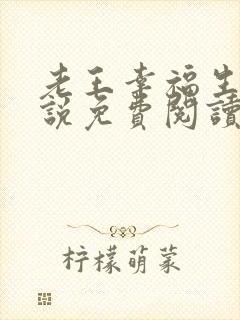 老王幸福生
說免費閱讀
柠檬萌菜